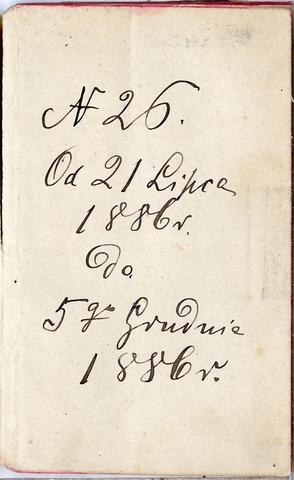 N 26.
Od 21 Lipca
1886 r.
Do
5go Grudnia
1886 r.